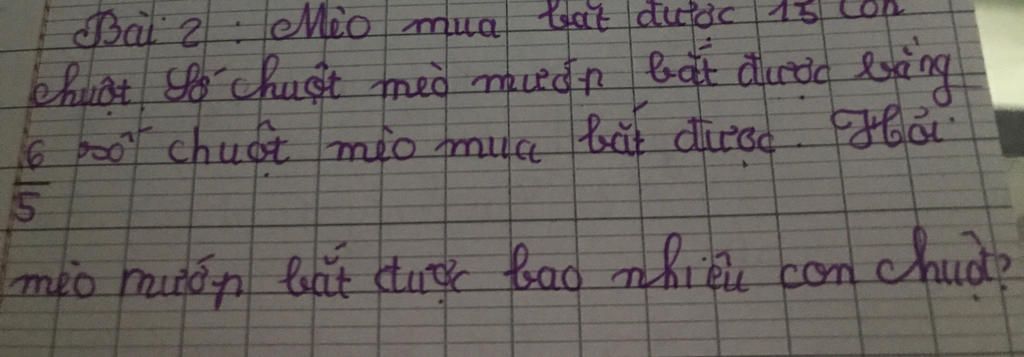 Bài 2 : Mèo mua bắt được 15 con
chuột. Số chuột mèo mướp bắt được bằng
6/5 số chuột mèo mua bắt được. Hỏi
mèo mướp bắt được bao nhiêu con chuột?